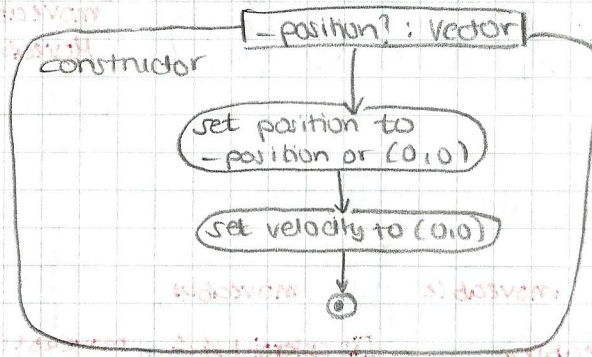 _position? : Vector
constructor
set position to
_position or (0,0)
set velocity to (0,0)